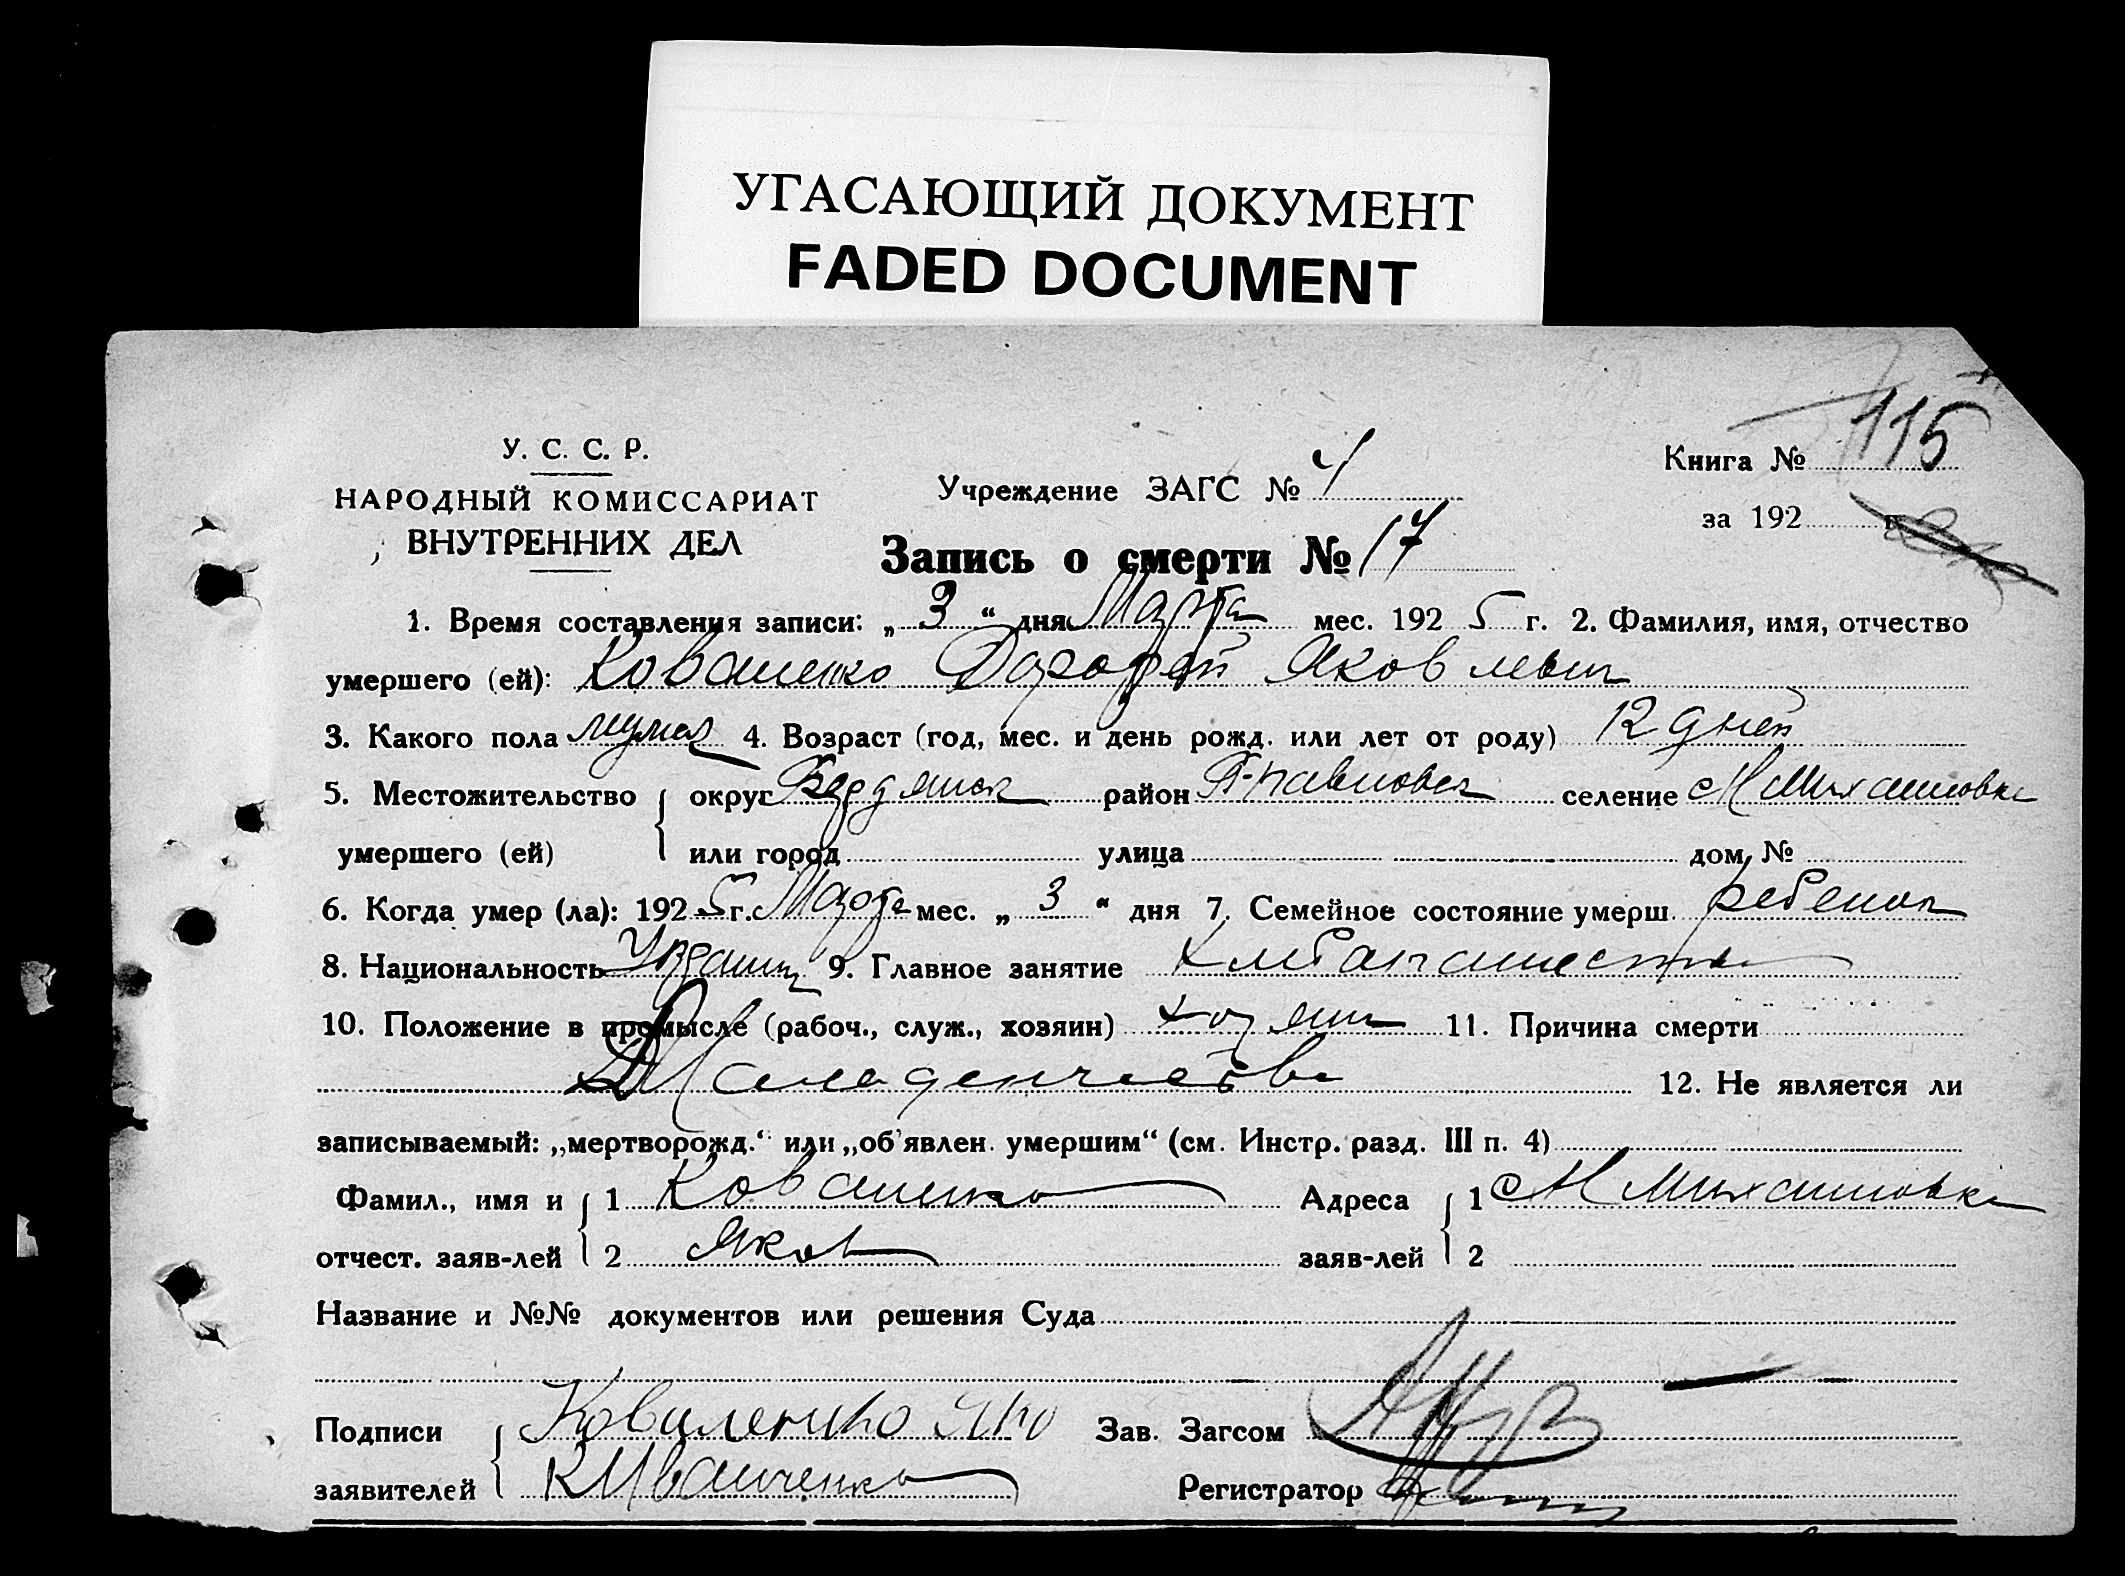 УГАСАЮЩИЙ ДОКУМЕНТ
FADED DOCUMENT
У. С. С. Р.
НАРОДНЫЙ КОМИССАРИАТ
ВНУТРЕННИХ ДЕЛ
Учреждение ЗАГС № 4
Запись о смерти № 17
Книга № 115
за 192 г.
1. Время составления записи: „ 3 “ дня Марта мес. 192 5 г. 2. Фамилия, имя, отчество
умершего (ей): Коваленко Дорофей Яковлевич
3. Какого пола мужск 4. Возраст (год, мес. и день рожд. или лет от роду) 12 дней
5. Местожительство округ Бердянск район П-павловск селение с Н Михайловка
умершего (ей) или город улица дом № 
6. Когда умер (ла): 192 5 г. Марта мес. „ 3 “ дня 7. Семейное состояние умерш. ребенок
8. Национальность Украин 9. Главное занятие хлебопашество
10. Положение в промысле (рабоч., служ., хозяин) хозяин 11. Причина смерти
Младенчество 12. Не является ли
записываемый: „мертворожд.“ или „об'явлен. умершим“ (см. Инстр. разд. III п. 4)
Фамил., имя и 1 Коваленко Адреса 1 с Н Михайловка
отчест. заяв-лей 2 Яков заяв-лей 2
Название и №№ документов или решения Суда
Подписи Коваленко Яко Зав. Загсом
заявителей К Иванченко Регистратор